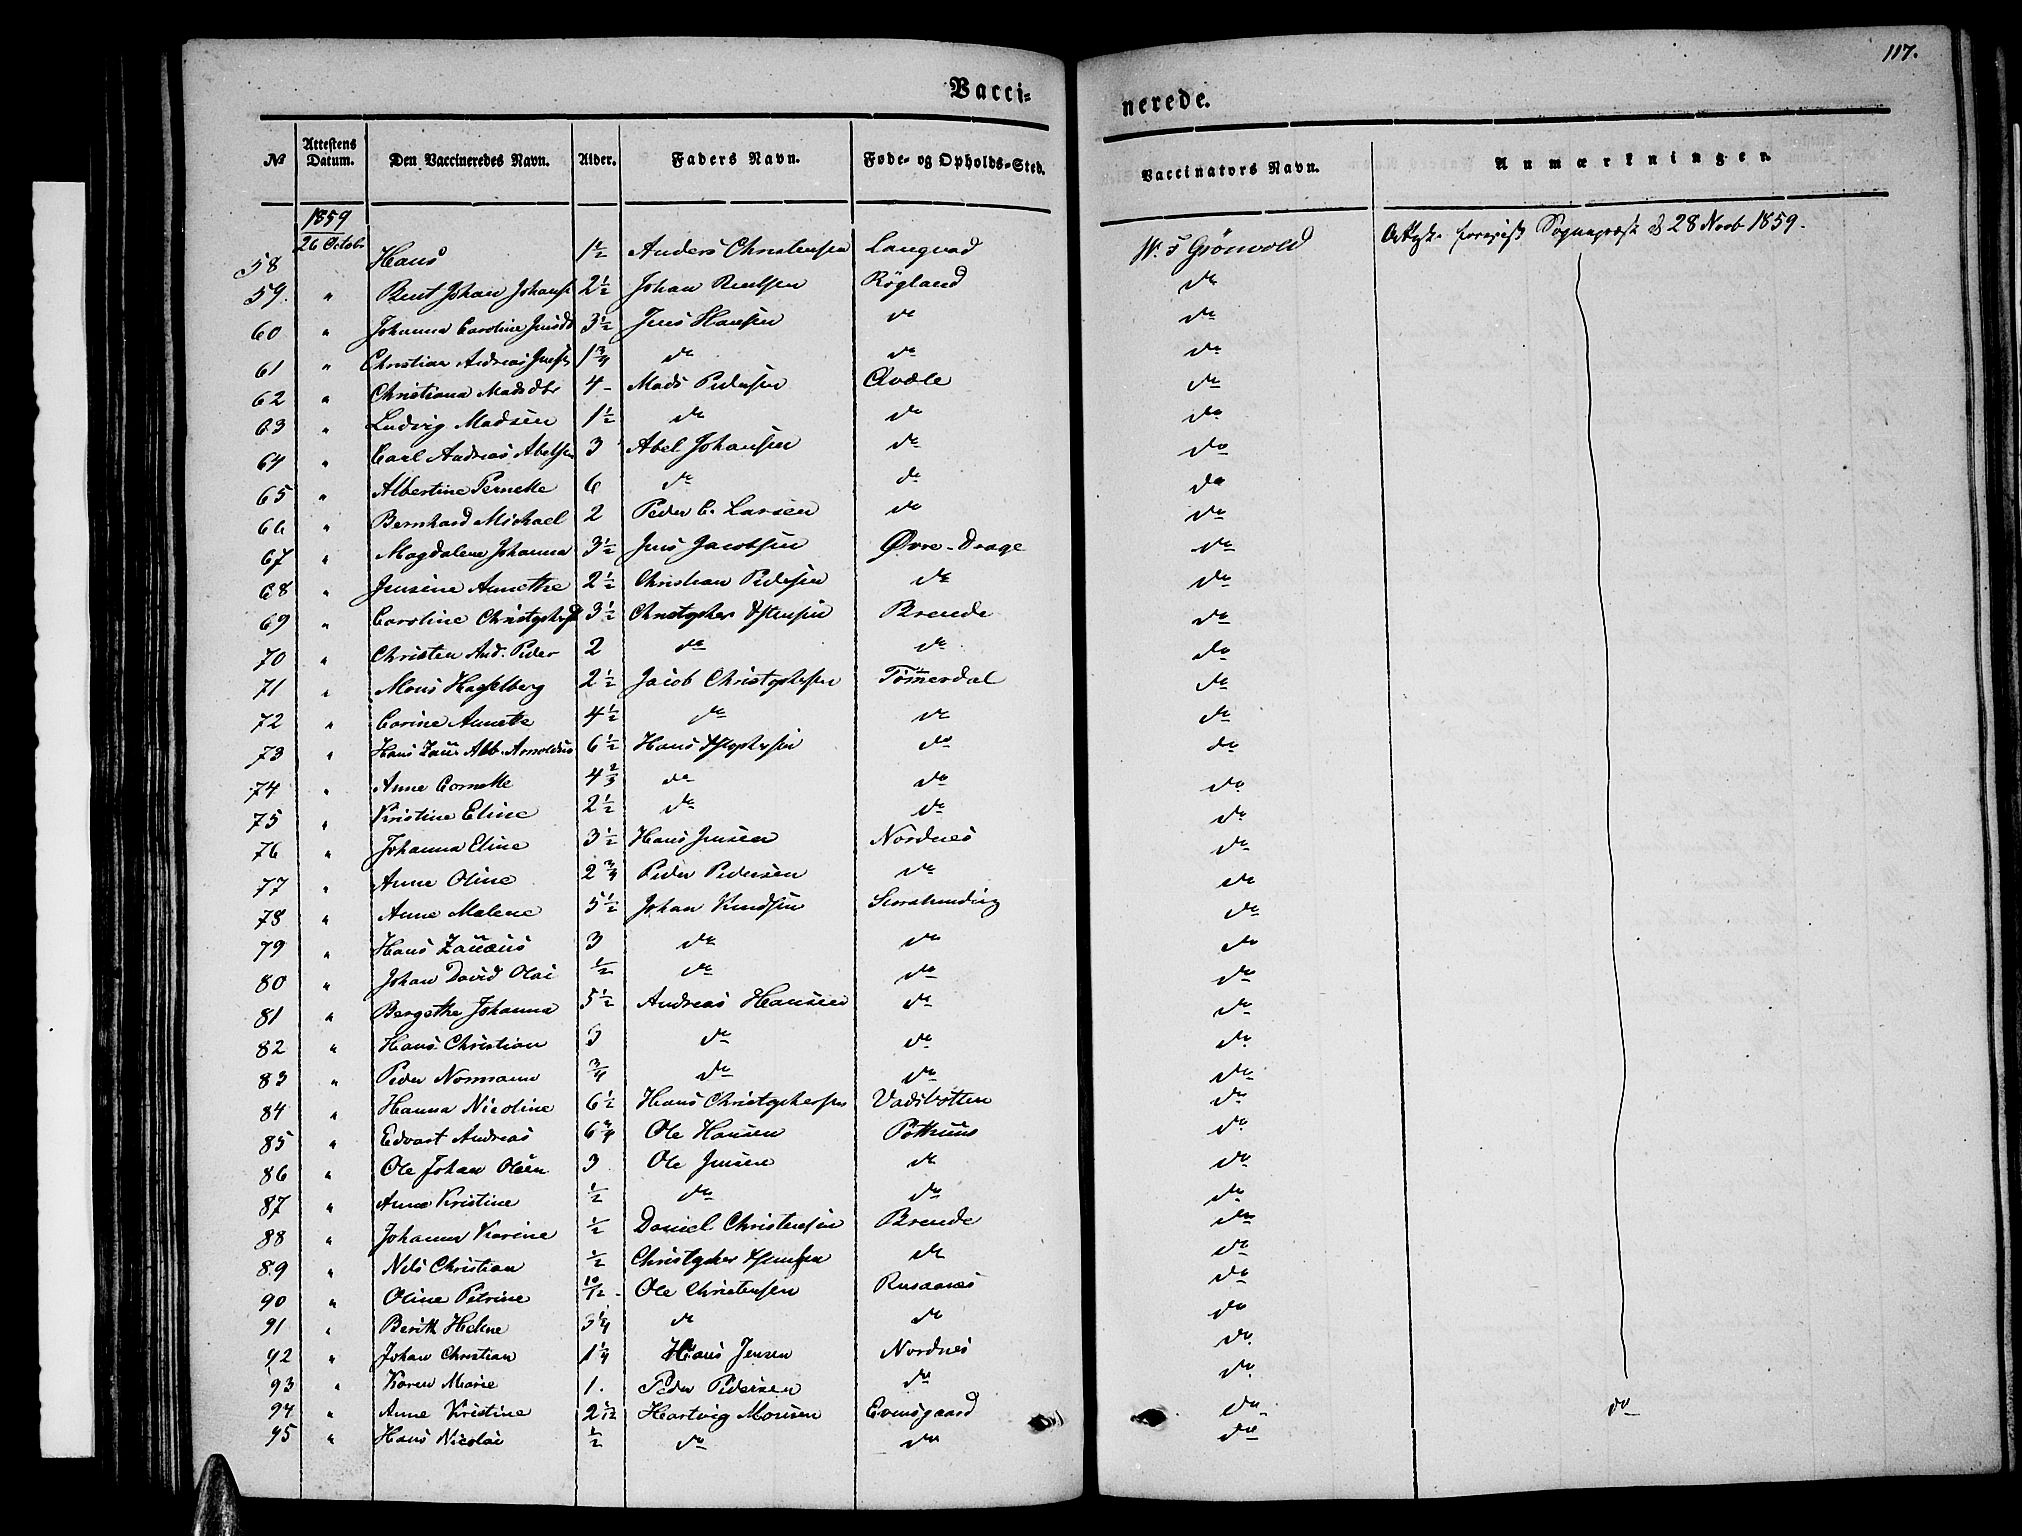 117.
Vaccinerede.
No Attestens Datum. Den Vaccineredes Navn. Alder. Faders Navn. Føde- og Opholds-Sted. Vaccinators Navn. Anmærkninger.
1859
58 26 Octobr Hans 1½ Anders Christensen Langvad W. F Grönvold forevist Sognepræst d 28 Novb 1859.
59. " Bent Johan Johans 2½ Johan Bentsen Rögland do
60 " Johanna Caroline Jensdtr 3½ Jens Hansen do do
61 " Christian Andreas Jensen 1¾ do do do
62 " Christiana Madsdtr 4 - Mads Pedersen Qvæle do
63 " Ludvig Madsen 1½ do do do
64 " Carl Andreas Abelsen 3 Abel Johansen do do
65 " Albertine Pernelle 6 do do do
66 " Bernhard Michael 2 Peder C. Larsen do do
67 " Magdalene Johanna 3½ Jens Jacobsen Øvre-Drage do
68 " Jensine Annethe 2½ Christian Pedersen do do
69 " Caroline Christophersd 3½ Christopher Brende do
70 " Christen And. Peder 2 do do do
71 " Mons Hagelberg 2½ Jacob Christophersen Tömerdal do
72 " Carine Annette 4½ do do do
73 " Hans Alb. Arnoldus 6½ Hans do do
74 " Anne Cornelle 4⅔ do do do
75 " Kristine Eline 2½ do do do
76 " Johanna Eline 3½ Hans Jensen Nordnes do
77 " Anne Oline 2¾ Peder Pedersen do do
78 " Anne Malene 5½ Johan Knudsen do
79 " Hans Zauæus 3 do do do
80 " Johan David Olai ½ do do do
81 " Bergethe Johanna 5½ Andreas Hansen do do
82 " Hans Christian 3 do do do
83 " Peder Normann ¾ do do do
84 " Hanna Nicoline 6½ Hans Christophersen Vadsbotten do
85 " Edvart Andreas 6¾ Ole Hansen Potthuus do
86 " Ole Johan Olsen 3 Ole Jensen do do
87 " Anne Kristine ½ do do do
88 " Johanna Karine ½ Daniel Christensen Brende do
89 " Nils Christian ½ Christopher do do
90 " Oline Petrine 10/12 - Ole Christensen Rusaanes do
91 " Berith Helene 3¼ do do do
92 " Johan Christian 1¼ Hans Jensen Nordnes do
93 " Karen Marie 1. Peder Pedersen do do
94 " Anne Kristine 2 1/12 Hartvig Monsen Evensgaard do do
95 " Hans Nicolai ½ do do do